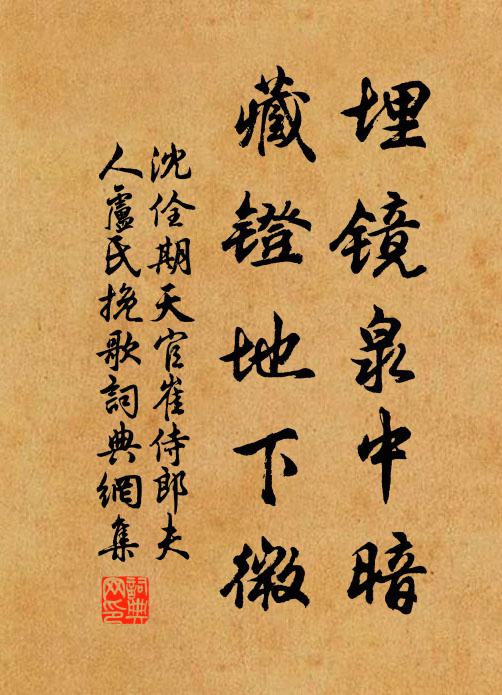 埋镜泉中暗
藏镫地下微
沈佺期天官崔侍郎夫
人盧氏挽歌詞典網集
詞典网印